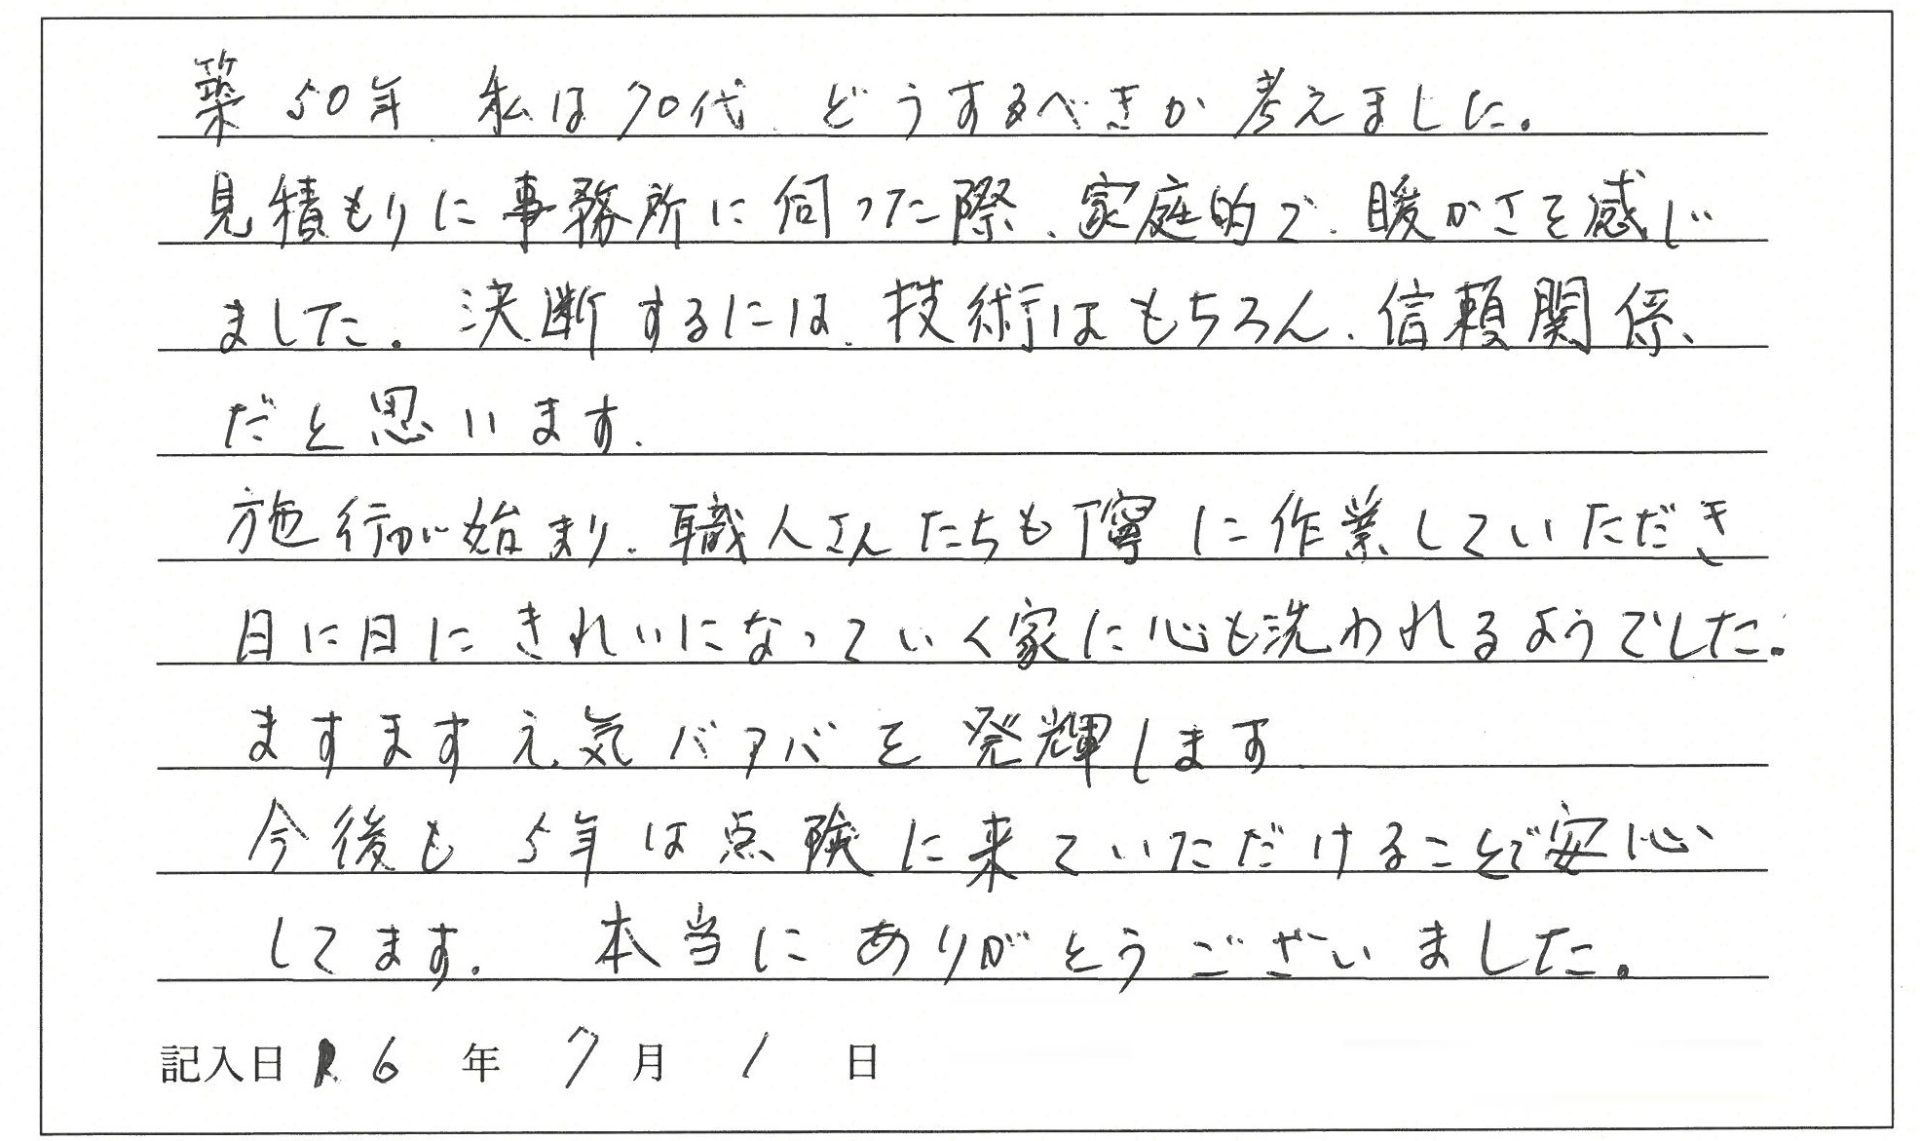 築50年 私は70代 どうするべきか考えました。
見積もりに事務所に伺った際、家庭的で、暖かさを感じ
ました。決断するには、技術はもちろん、信頼関係、
だと思います。
施行が始まり、職人さんたちも丁寧に作業していただき
日に日にきれいになっていく家に心も洗われるようでした。
ますます元気バアバを発輝します
今後も5年は点険に来ていただけることで安心
してます。 本当にありがとうございました。
記入日 R6年7月1日